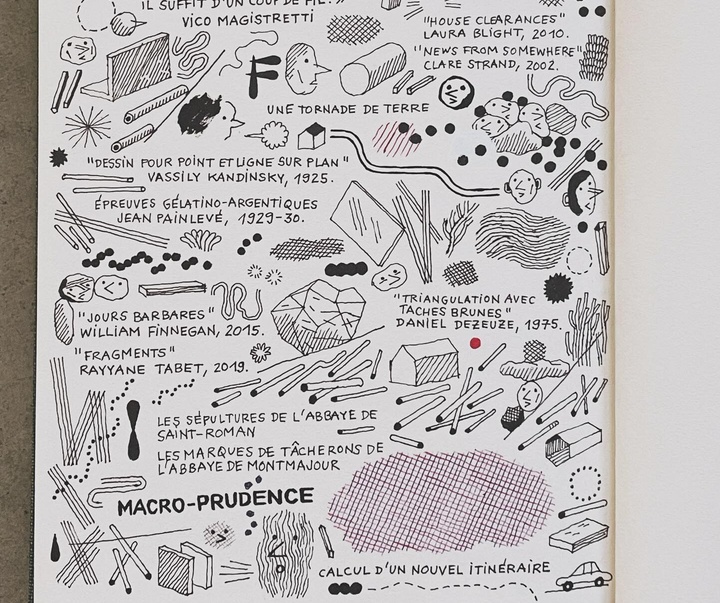 IL SUFFIT D'UN COUP DE FIL.»
VICO MAGISTRETTI
"HOUSE CLEARANCES"
LAURA BLIGHT, 2010.
"NEWS FROM SOMEWHERE"
CLARE STRAND, 2002.
F
UNE TORNADE DE TERRE
"DESSIN POUR POINT ET LIGNE SUR PLAN"
VASSILY KANDINSKY, 1925.
ÉPREUVES GÉLATINO-ARGENTIQUES
JEAN PAINLEVÉ, 1929-30.
"TRIANGULATION AVEC
TACHES BRUNES"
DANIEL DEZEUZE, 1975.
"JOURS BARBARES"
WILLIAM FINNEGAN, 2015.
"FRAGMENTS"
RAYYANE TABET, 2019.
LES SÉPULTURES DE L'ABBAYE DE
SAINT-ROMAN
LES MARQUES DE TÂCHERONS DE
L'ABBAYE DE MONTMAJOUR
MACRO-PRUDENCE
CALCUL D'UN NOUVEL ITINÉRAIRE